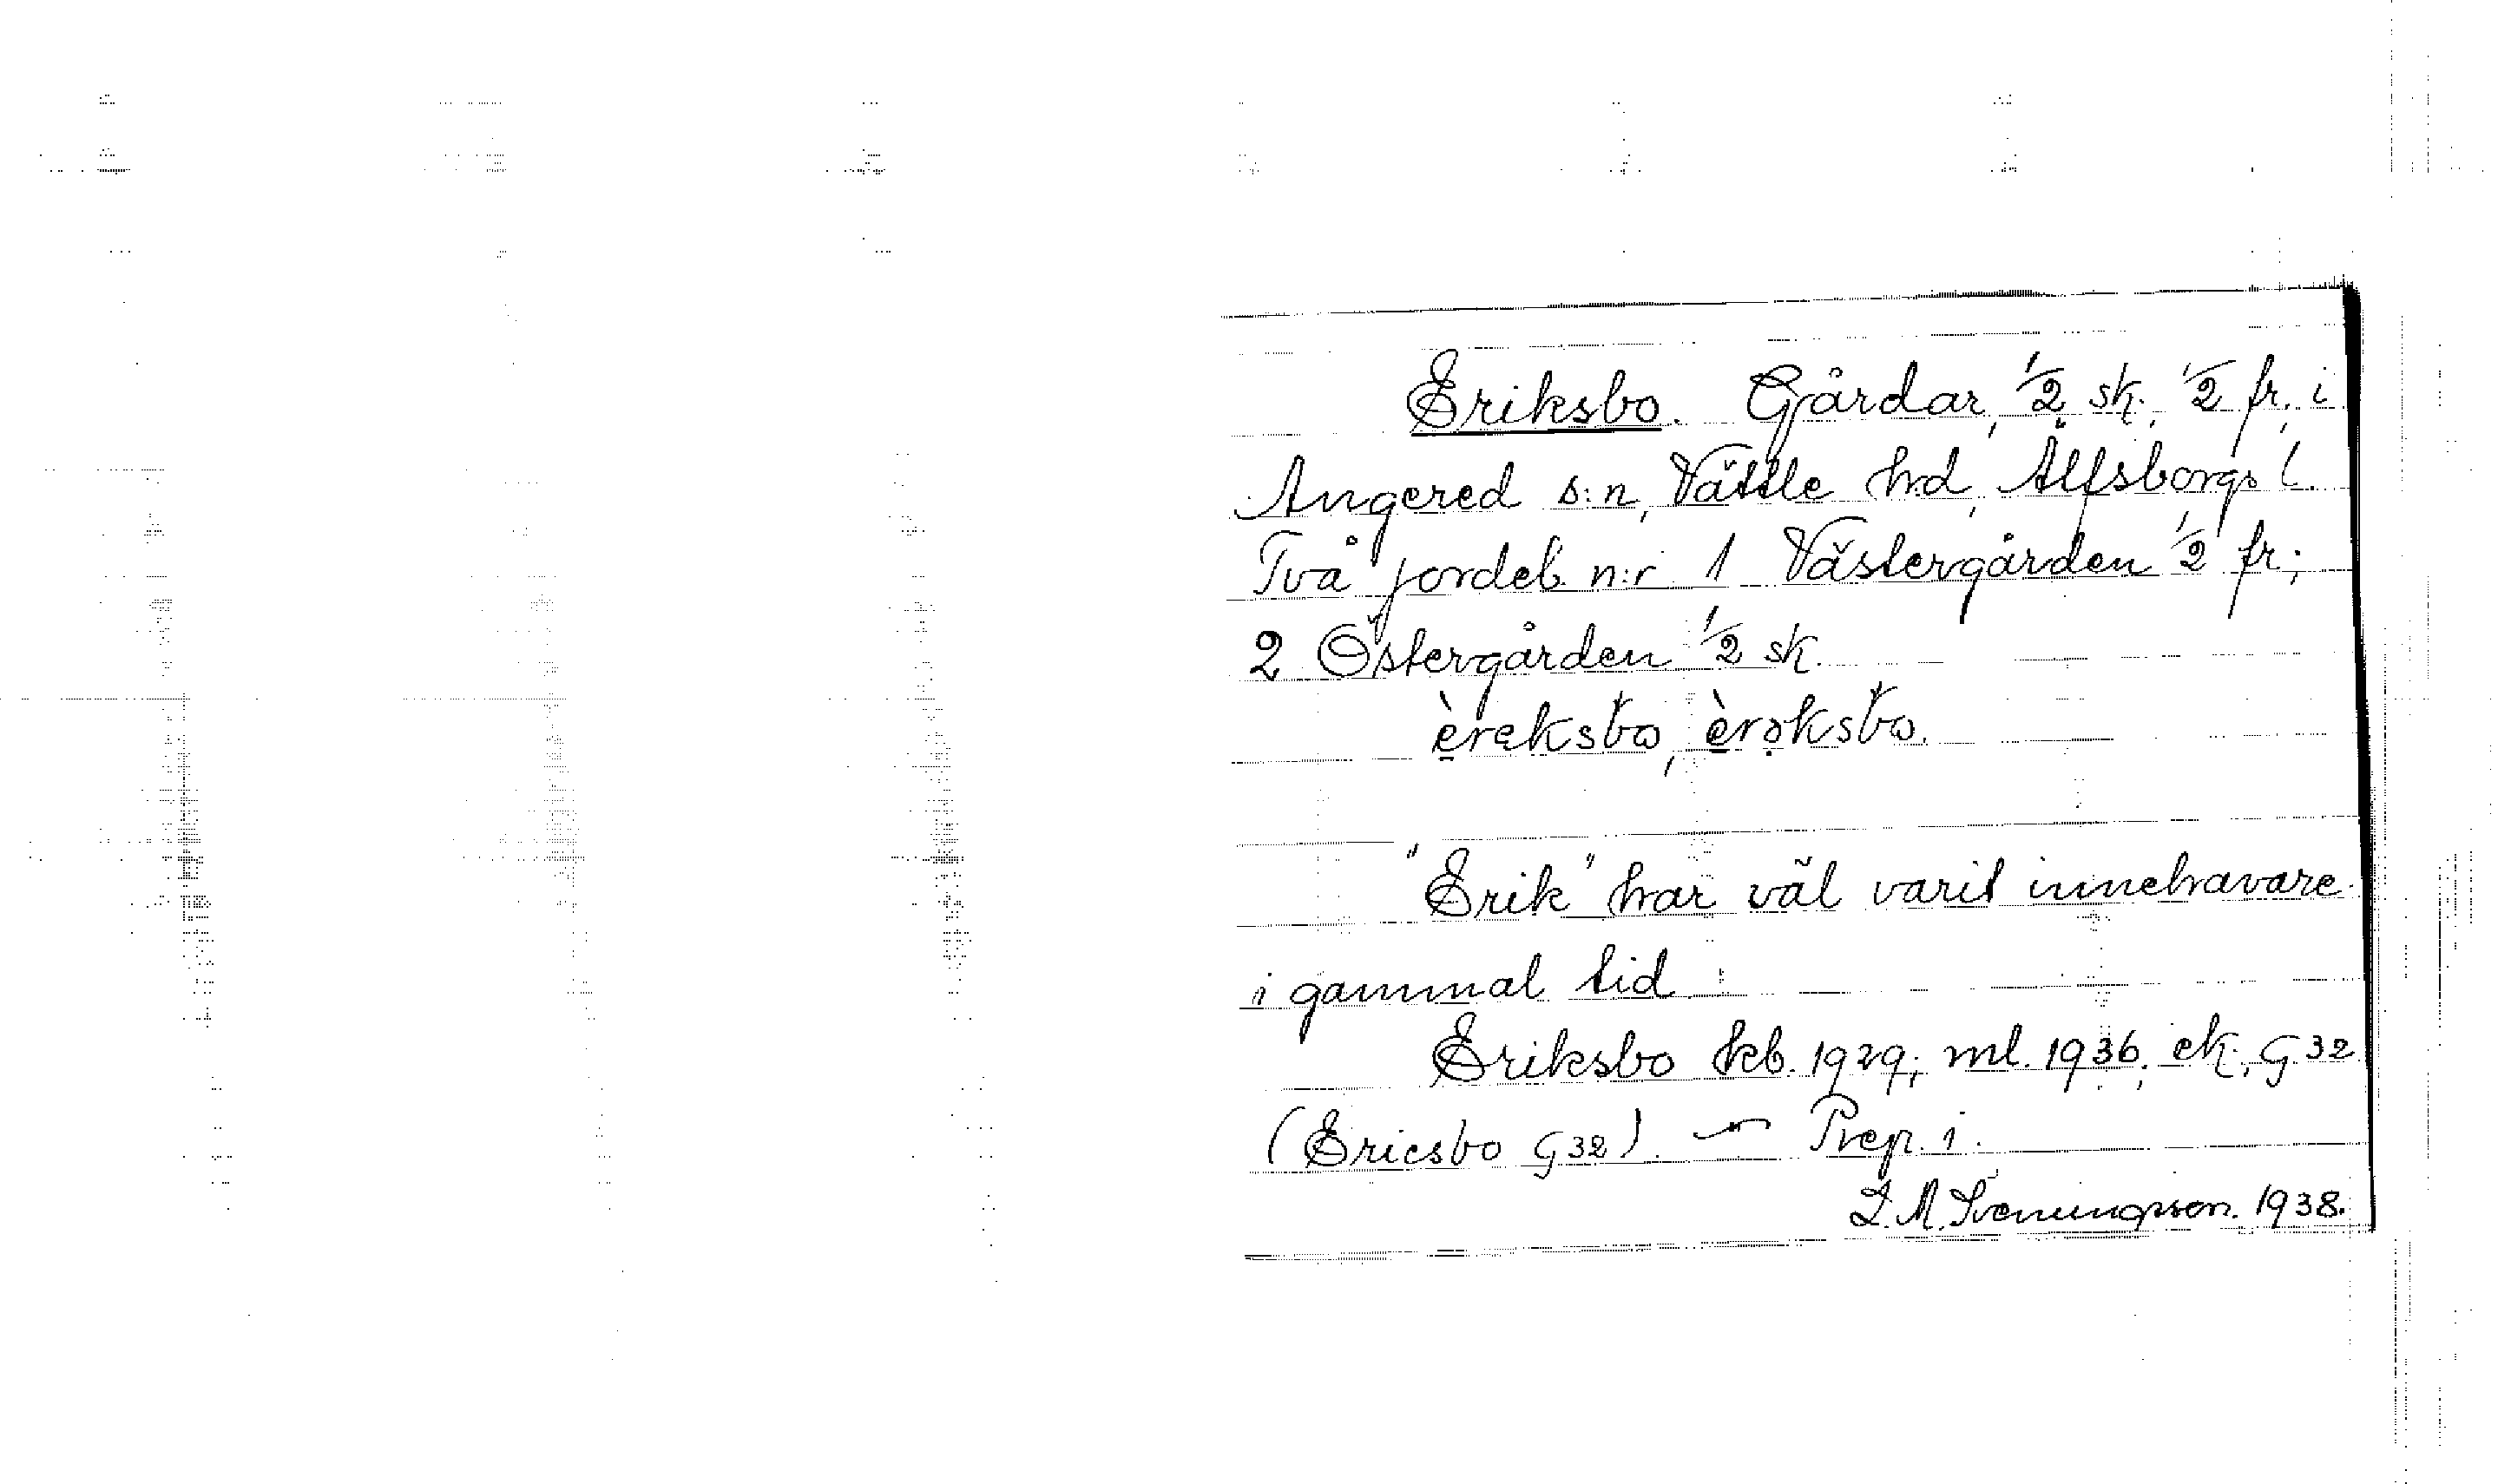 Eriksbo. Gårdar, 1/2 sk., 1/2 fr., i
Angered s:n, Vättle h:d, Älfsborgs l.
Två jordeb. n:r 1 Västergården 1/2 fr.;
2 Östergården 1/2 sk.
"Erik" har väl varit innehavare
i gammal tid
Eriksbo kb. 1929; ml. 1936; ek.; G 32
(Ericsbo G 32). — Prep. i.
1938.